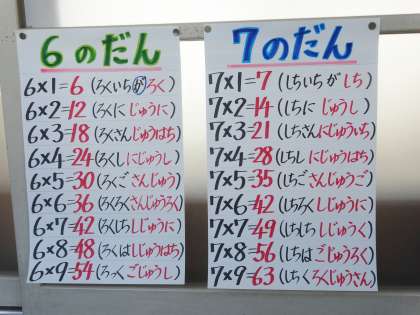 6のだん
6×1=6 (ろくいちがろく)
6×2=12 (ろくにじゅうに)
6×3=18 (ろくさんじゅうはち)
6×4=24 (ろくしにじゅうし)
6×5=30 (ろくごさんじゅう)
6×6=36 (ろくろくさんじゅうろく)
6×7=42 (ろくしちしじゅうに)
6×8=48 (ろくはしじゅうはち)
6×9=54 (ろっくごじゅうし)
7のだん
7×1=7 (しちいちがしち)
7×2=14 (しちにじゅうし)
7×3=21 (しちさんにじゅういち)
7×4=28 (しちしにじゅうはち)
7×5=35 (しちごさんじゅうご)
7×6=42 (しちろくしじゅうに)
7×7=49 (しちしちしじゅうく)
7×8=56 (しちはごじゅうろく)
7×9=63 (しちくろくじゅうさん)